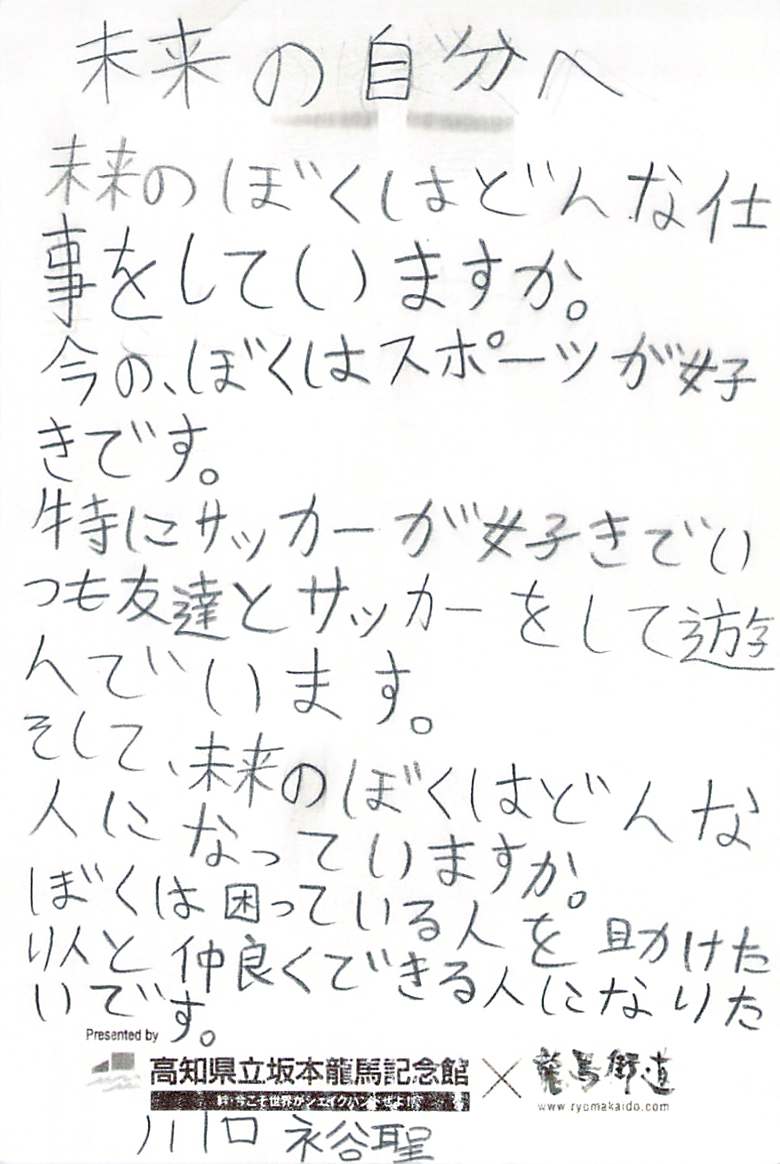 未来の自分へ
未来のぼくはどんな仕
事をしていますか。
今の、ぼくはスポーツが好
きです。
特にサッカーが好きでい
つも友達とサッカーをして遊
んでいます。
そして、未来のぼくはどんな
人になっていますか。
ぼくは困っている人を助けた
り人と仲良くできる人になりた
いです。
Presented by
高知県立坂本龍馬記念館×龍馬街道
絆・今こそ世界がシェイクハンドぜよ!
www.ryomakaido.com
川口 裕聖